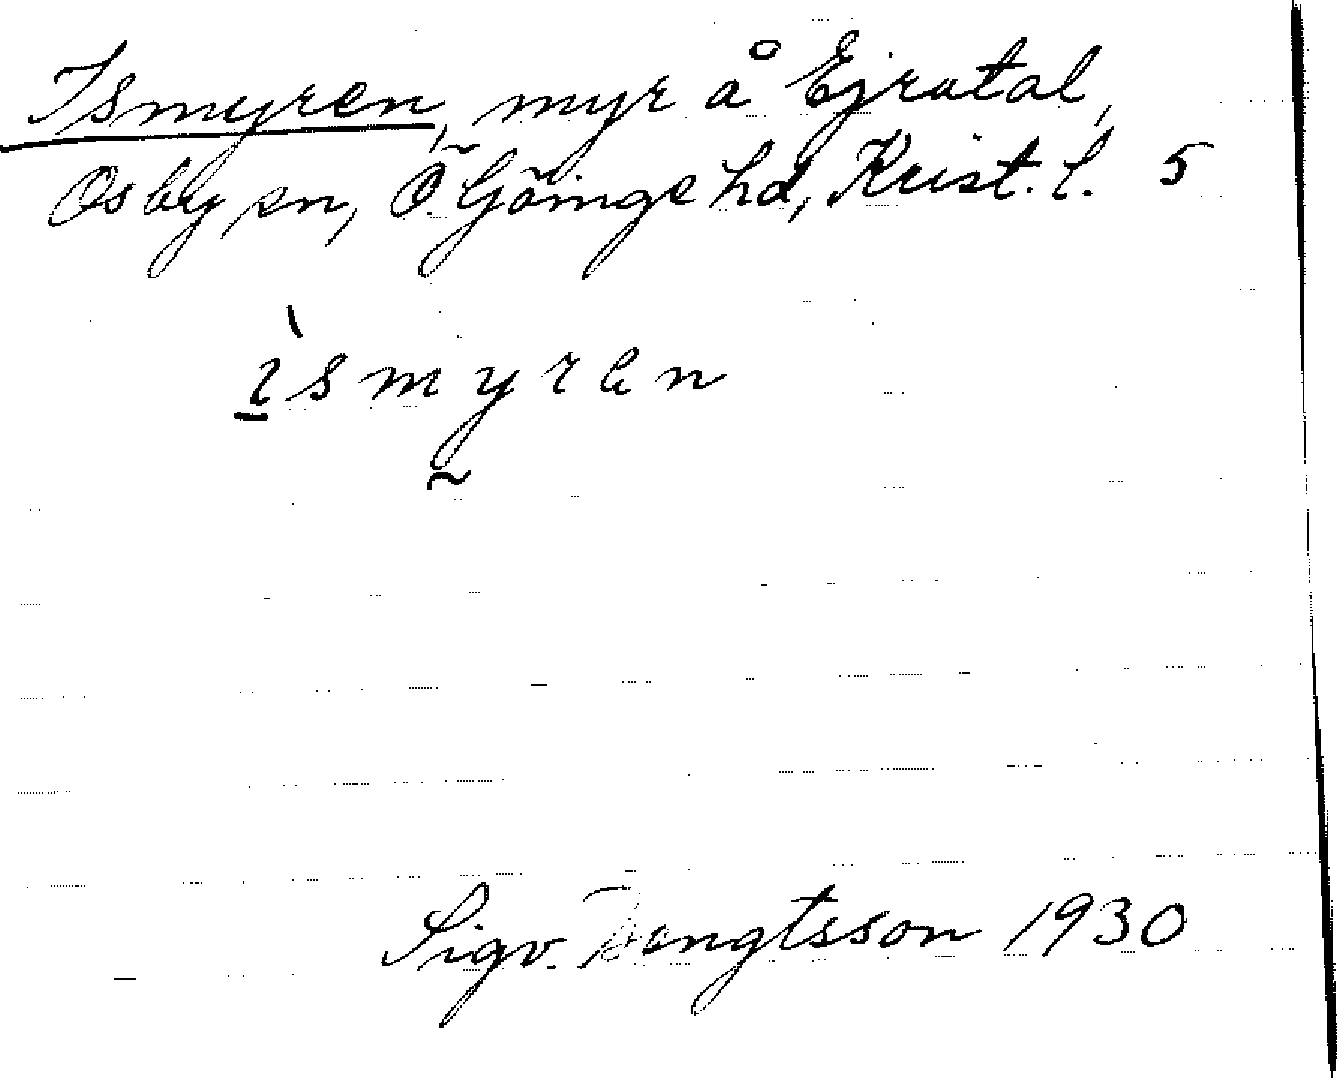 Ismyren, myr å Ejratal,
Osby sn, Ö. Göinge hd, Krist. l. 5
ı̀smyren
Sigv. Bengtsson 1930